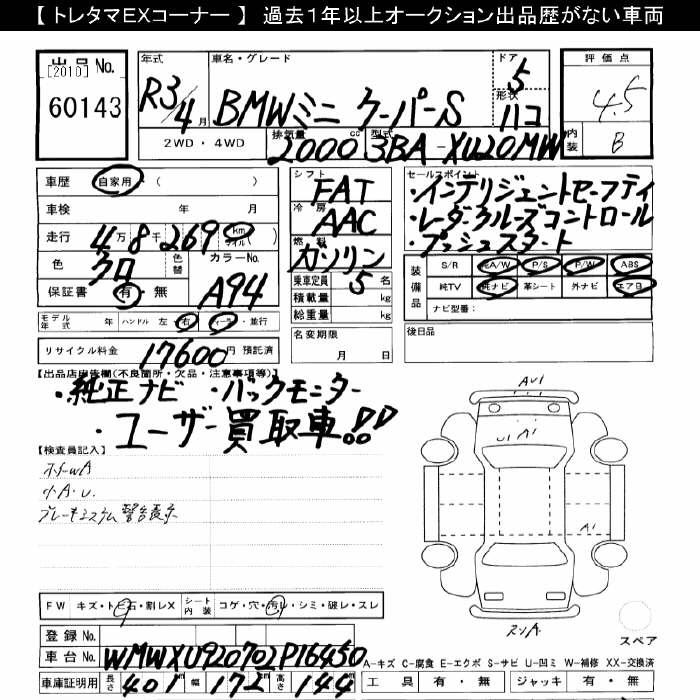 【 トレタマEXコーナー 】 過去1年以上オークション出品歴がない車両
出品 No.
[2010]
60143
年式
R3/4 月
車名・グレード
BMWミニ クーパーS
ドア
5
形状
ハコ
2WD・4WD
排気量
2000 cc
型式
3BA-XU20MW
評価点
4.5
内装
B
車歴 自家用・( )
車検 年 月
走行 4万8千269 km マイル( )
色 クロ
色替
カラーNo.
A94
保証書 有・無
モデル年式 年 ハンドル 左 右 ディーラー・並行
リサイクル料金 17600円 預託済
シフト
FAT
冷房
AAC
燃料
ガソリン
乗車定員 5 名
積載量 kg
総重量 kg
名変期限
月 日
セールスポイント
・インテリジェントセーフティ
・レーダークルーズコントロール
・プッシュスタート
装備品
S/R 純A/W P/S P/W ABS
純TV 純ナビ 革シート 外ナビ エアB
ナビ型番：
後日品
【出品店申告欄(不良箇所・欠品・注意事項等)】
・純正ナビ ・バックモニター
・ユーザー買取車!!
【検査員記入】
小A.U.
ブレーキシステム警告表示
FW キズ・トビ石・割レX
シート内装 コゲ・穴・汚レ・シミ・破レ・スレ
登録 No.
車台 No. WMWXU920702P16450
車庫証明用 長さ 401 幅 172 高さ 144
AU1
A1
A1
スリA.
スペア
A-キズ C-腐食 E-エクボ S-サビ U-凹ミ W-補修 XX-交換済
工具 有・無 ジャッキ 有・無